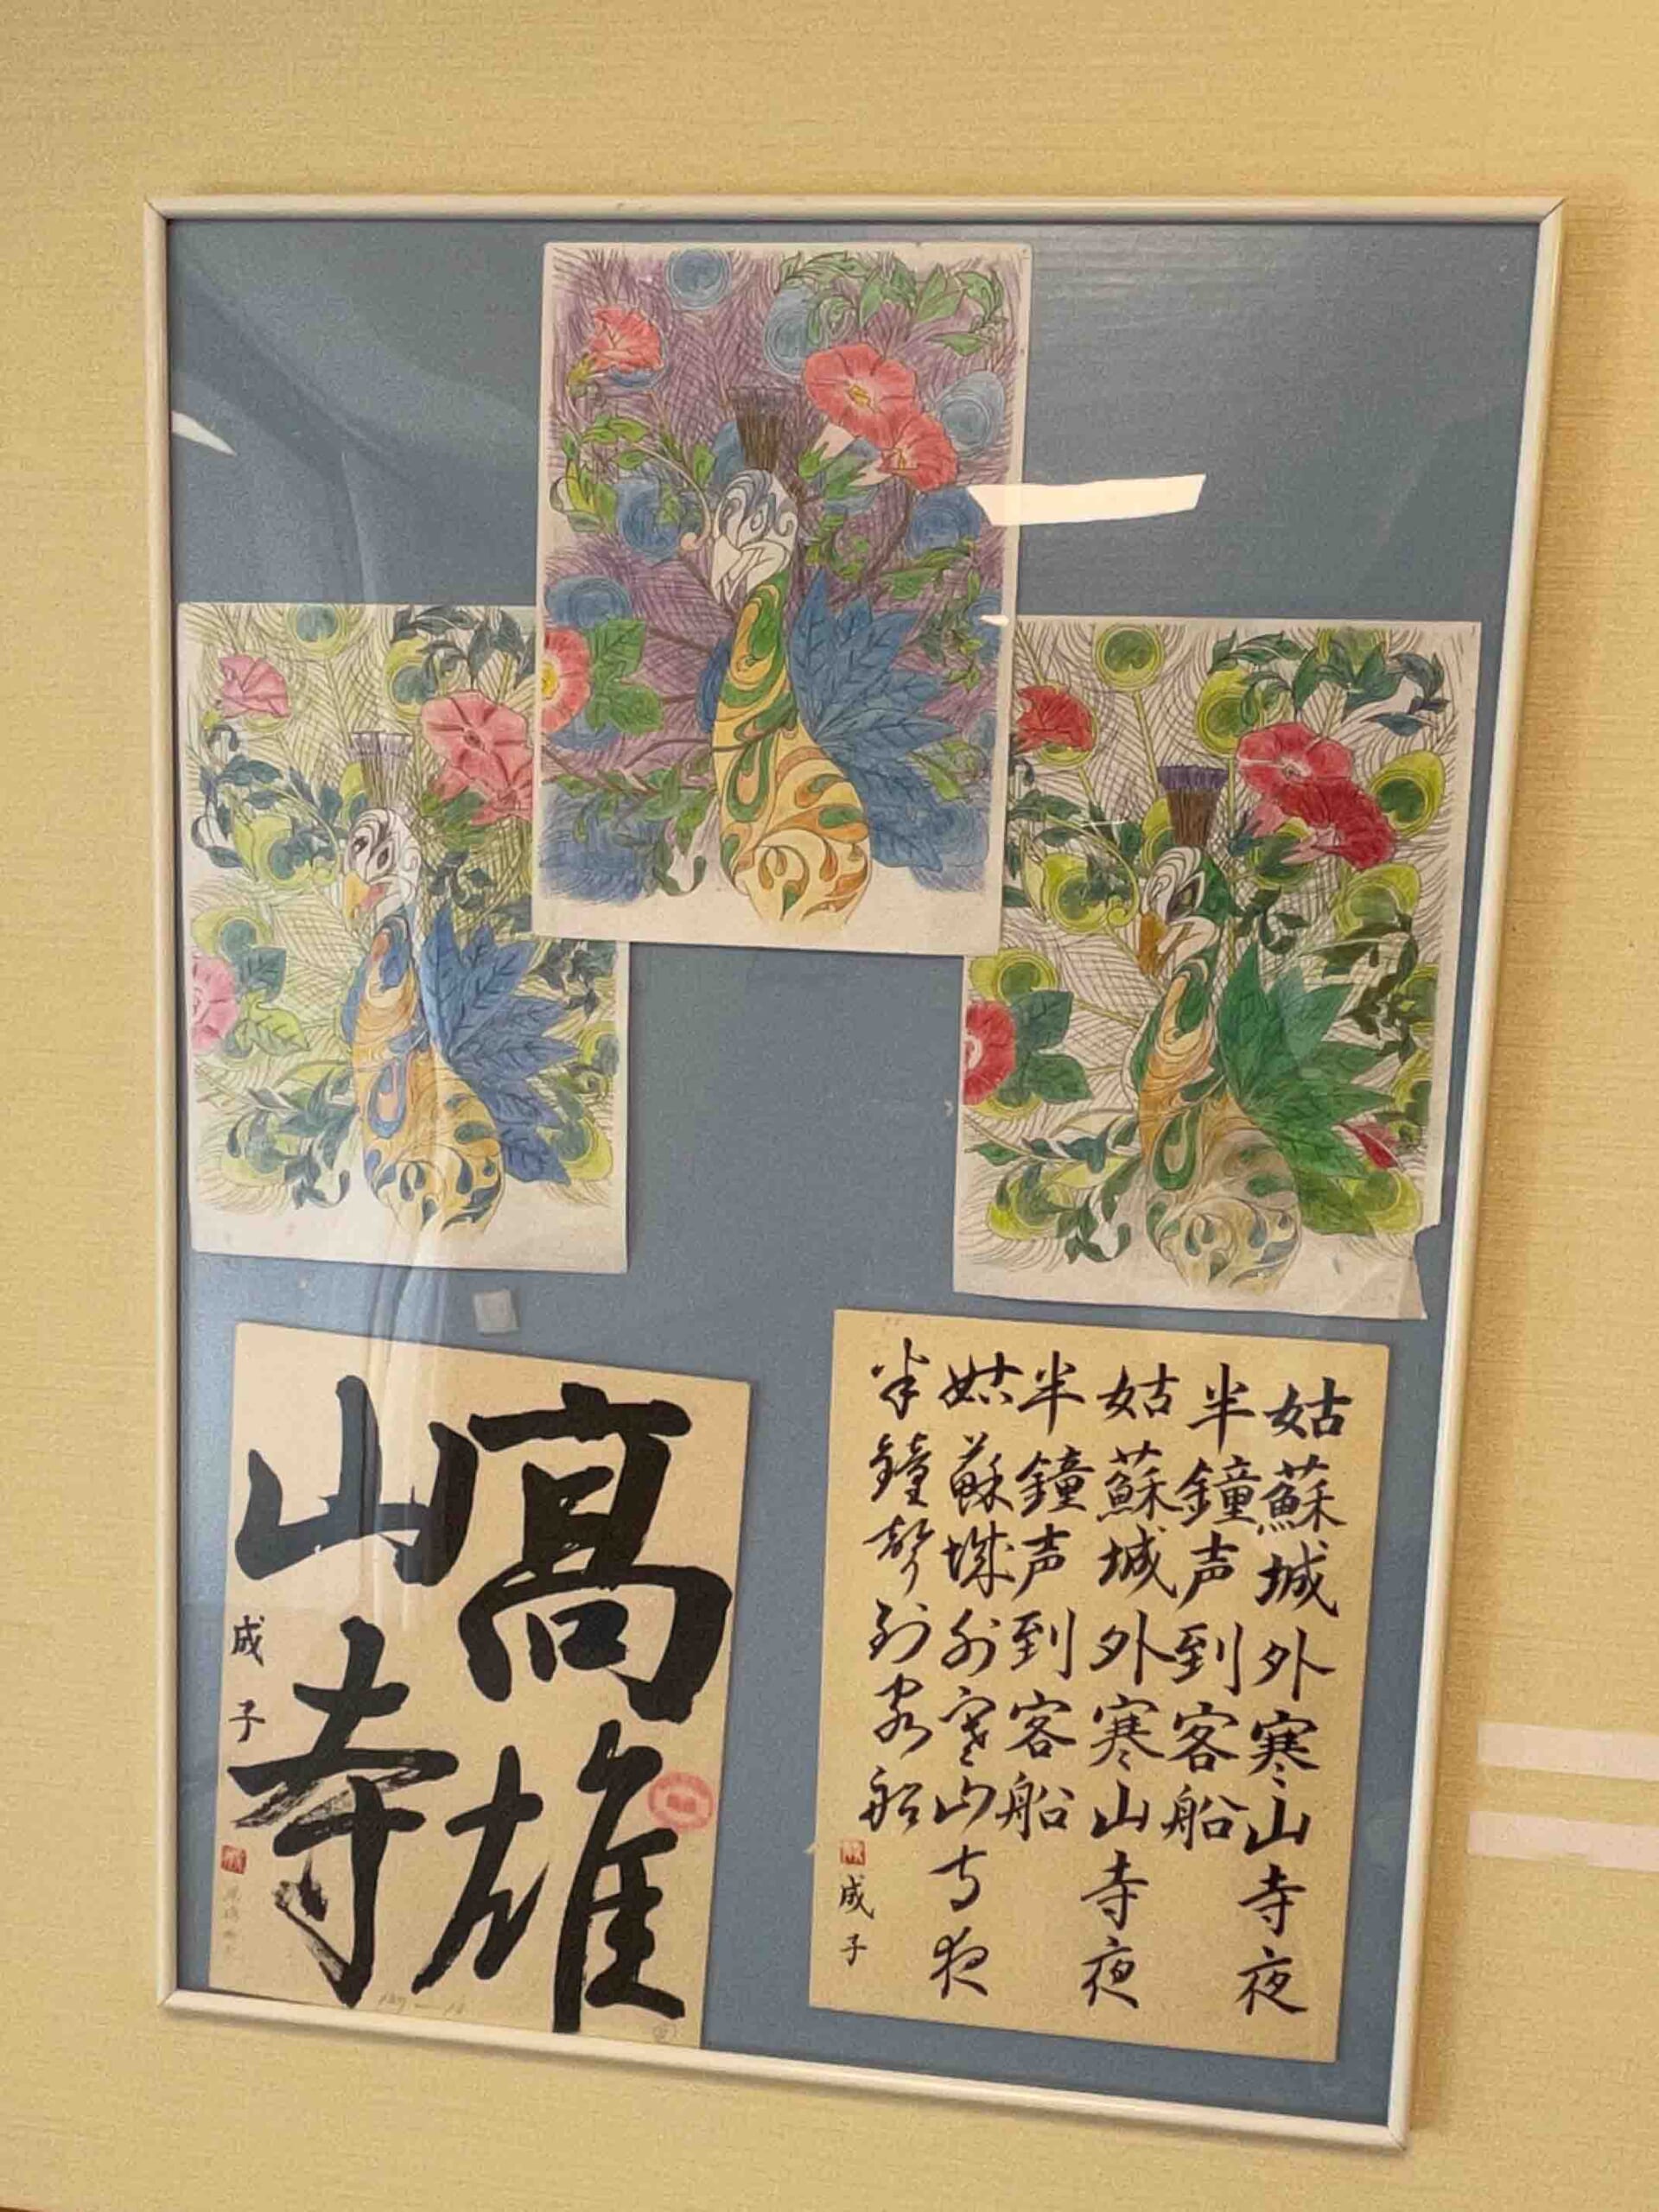 高雄
山寺
成子
姑蘇城外寒山寺夜
半鐘声到客船
姑蘇城外寒山寺夜
半鐘声到客船
姑蘇城外寒山寺夜
半鐘聲到客船
成子